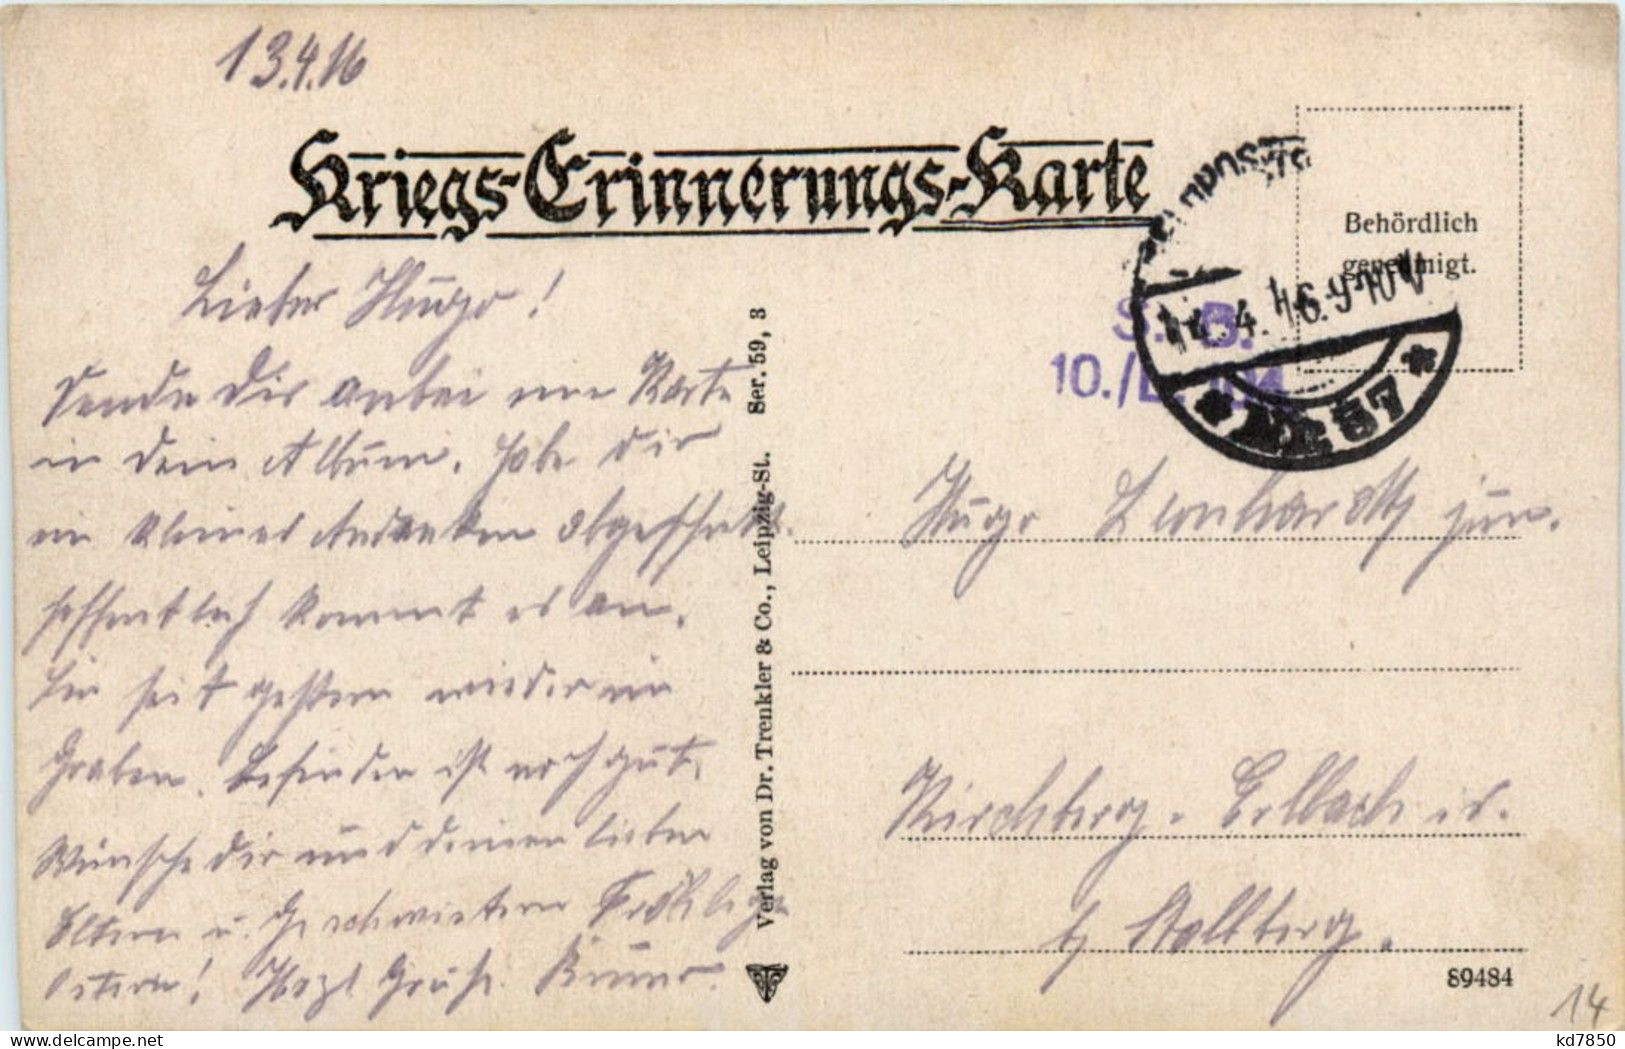 13.4.16
Kriegs-Erinnerungs-Karte
Behördlich
genehmigt.
14.4.16. 9-10 V
* 87 *
S. B.
10./L.
Lieber Hugo!
Sende Dir anbei eine Karte
in dein Album. Habe dir
ein kleines Andenken abgeschickt.
hoffentlich kommt es an.
Bin seit gestern wieder im
Graben. Befinden ist noch gut,
Wünsche dir und deinen lieben
Eltern u. Geschwistern Fröhliche
Ostern! Herzl Gruß.
Verlag von Dr. Trenkler & Co., Leipzig-St. Ser. 59, 3
Hugo Leonhardt jun.
Kirchberg. Erlbach
b/ Stollberg.
89484
14
kd7850